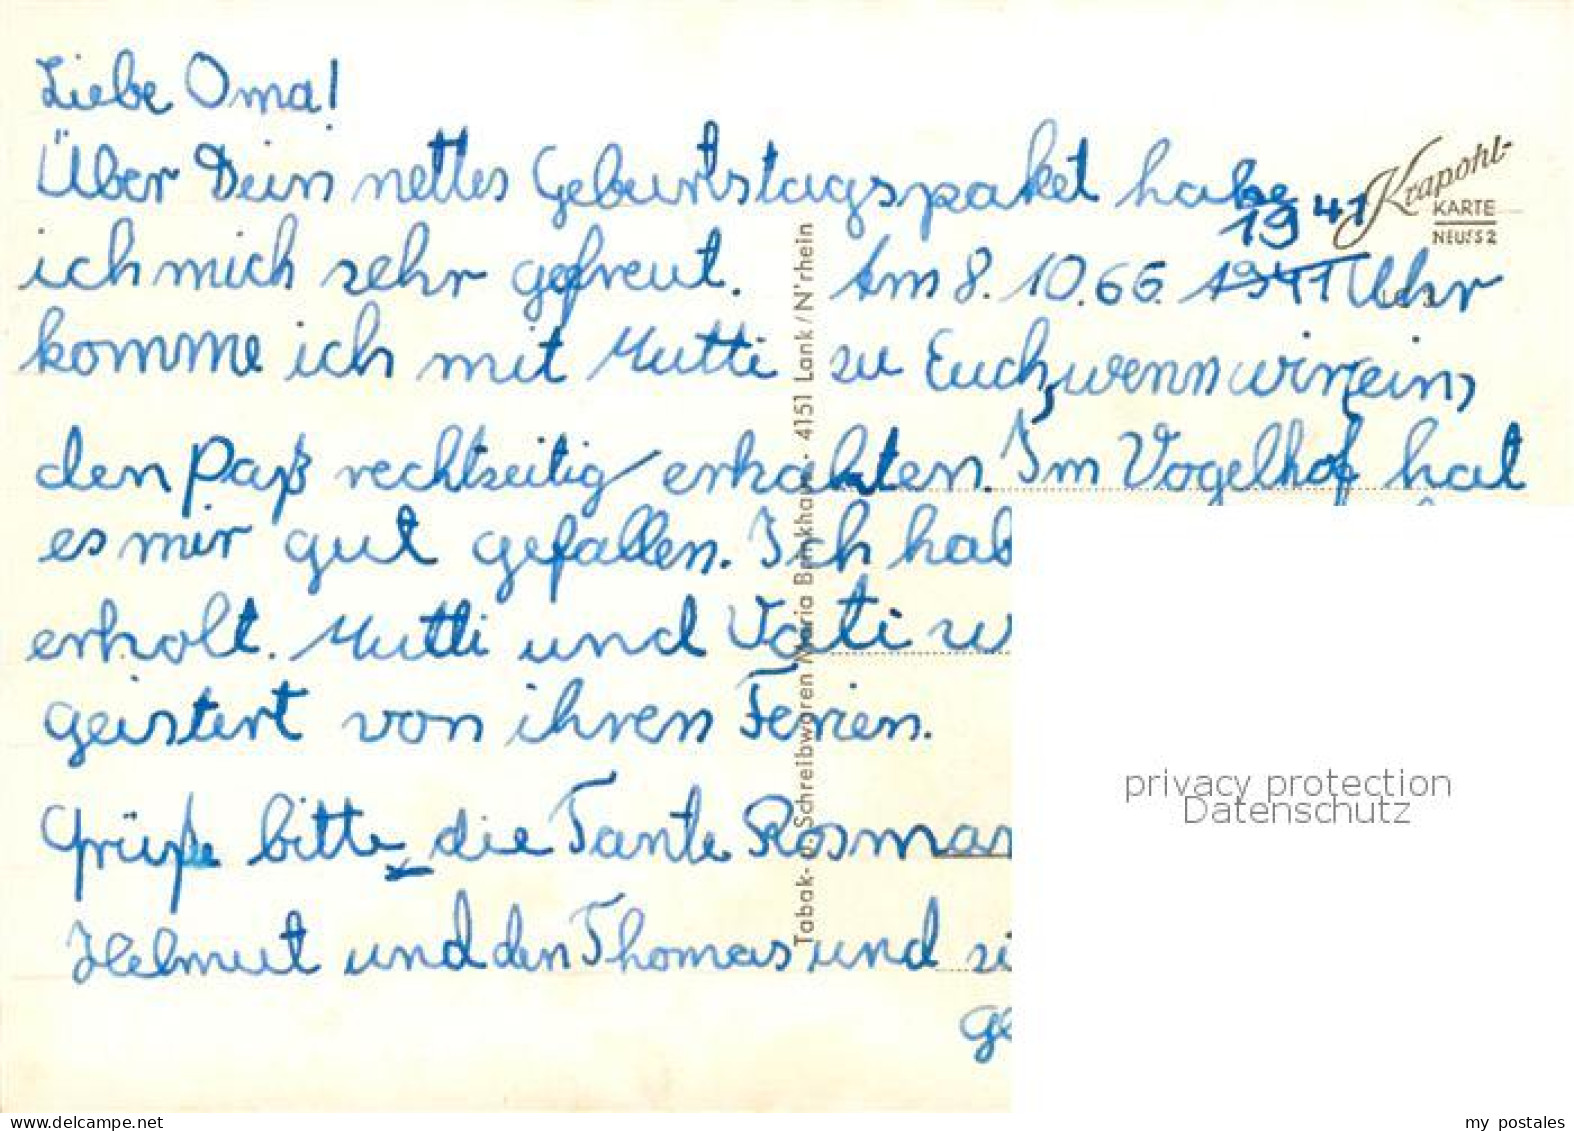 Liebe Oma!
Über Dein nettes Geburtstagspaket habe
ich mich sehr gefreut. Am 8.10.66. 1941 Uhr
19 41
komme ich mit Mutti zu Euch, wenn wir ein,
den Paß rechtzeitig erhalten. Im Vogelhof hat
es mir gut gefallen. Ich hab
erholt. Mutti und Vati w
geistert von ihren Ferien.
Grüße bitte die Tante Rosmar
Helmut und den Thomas und si
ge
Krapohl-
KARTE
NEUSS 2
Tabak- u. Schreibwaren Maria - 4151 Lank/N'rhein
privacy protection
Datenschutz
delcampe.net
my postales